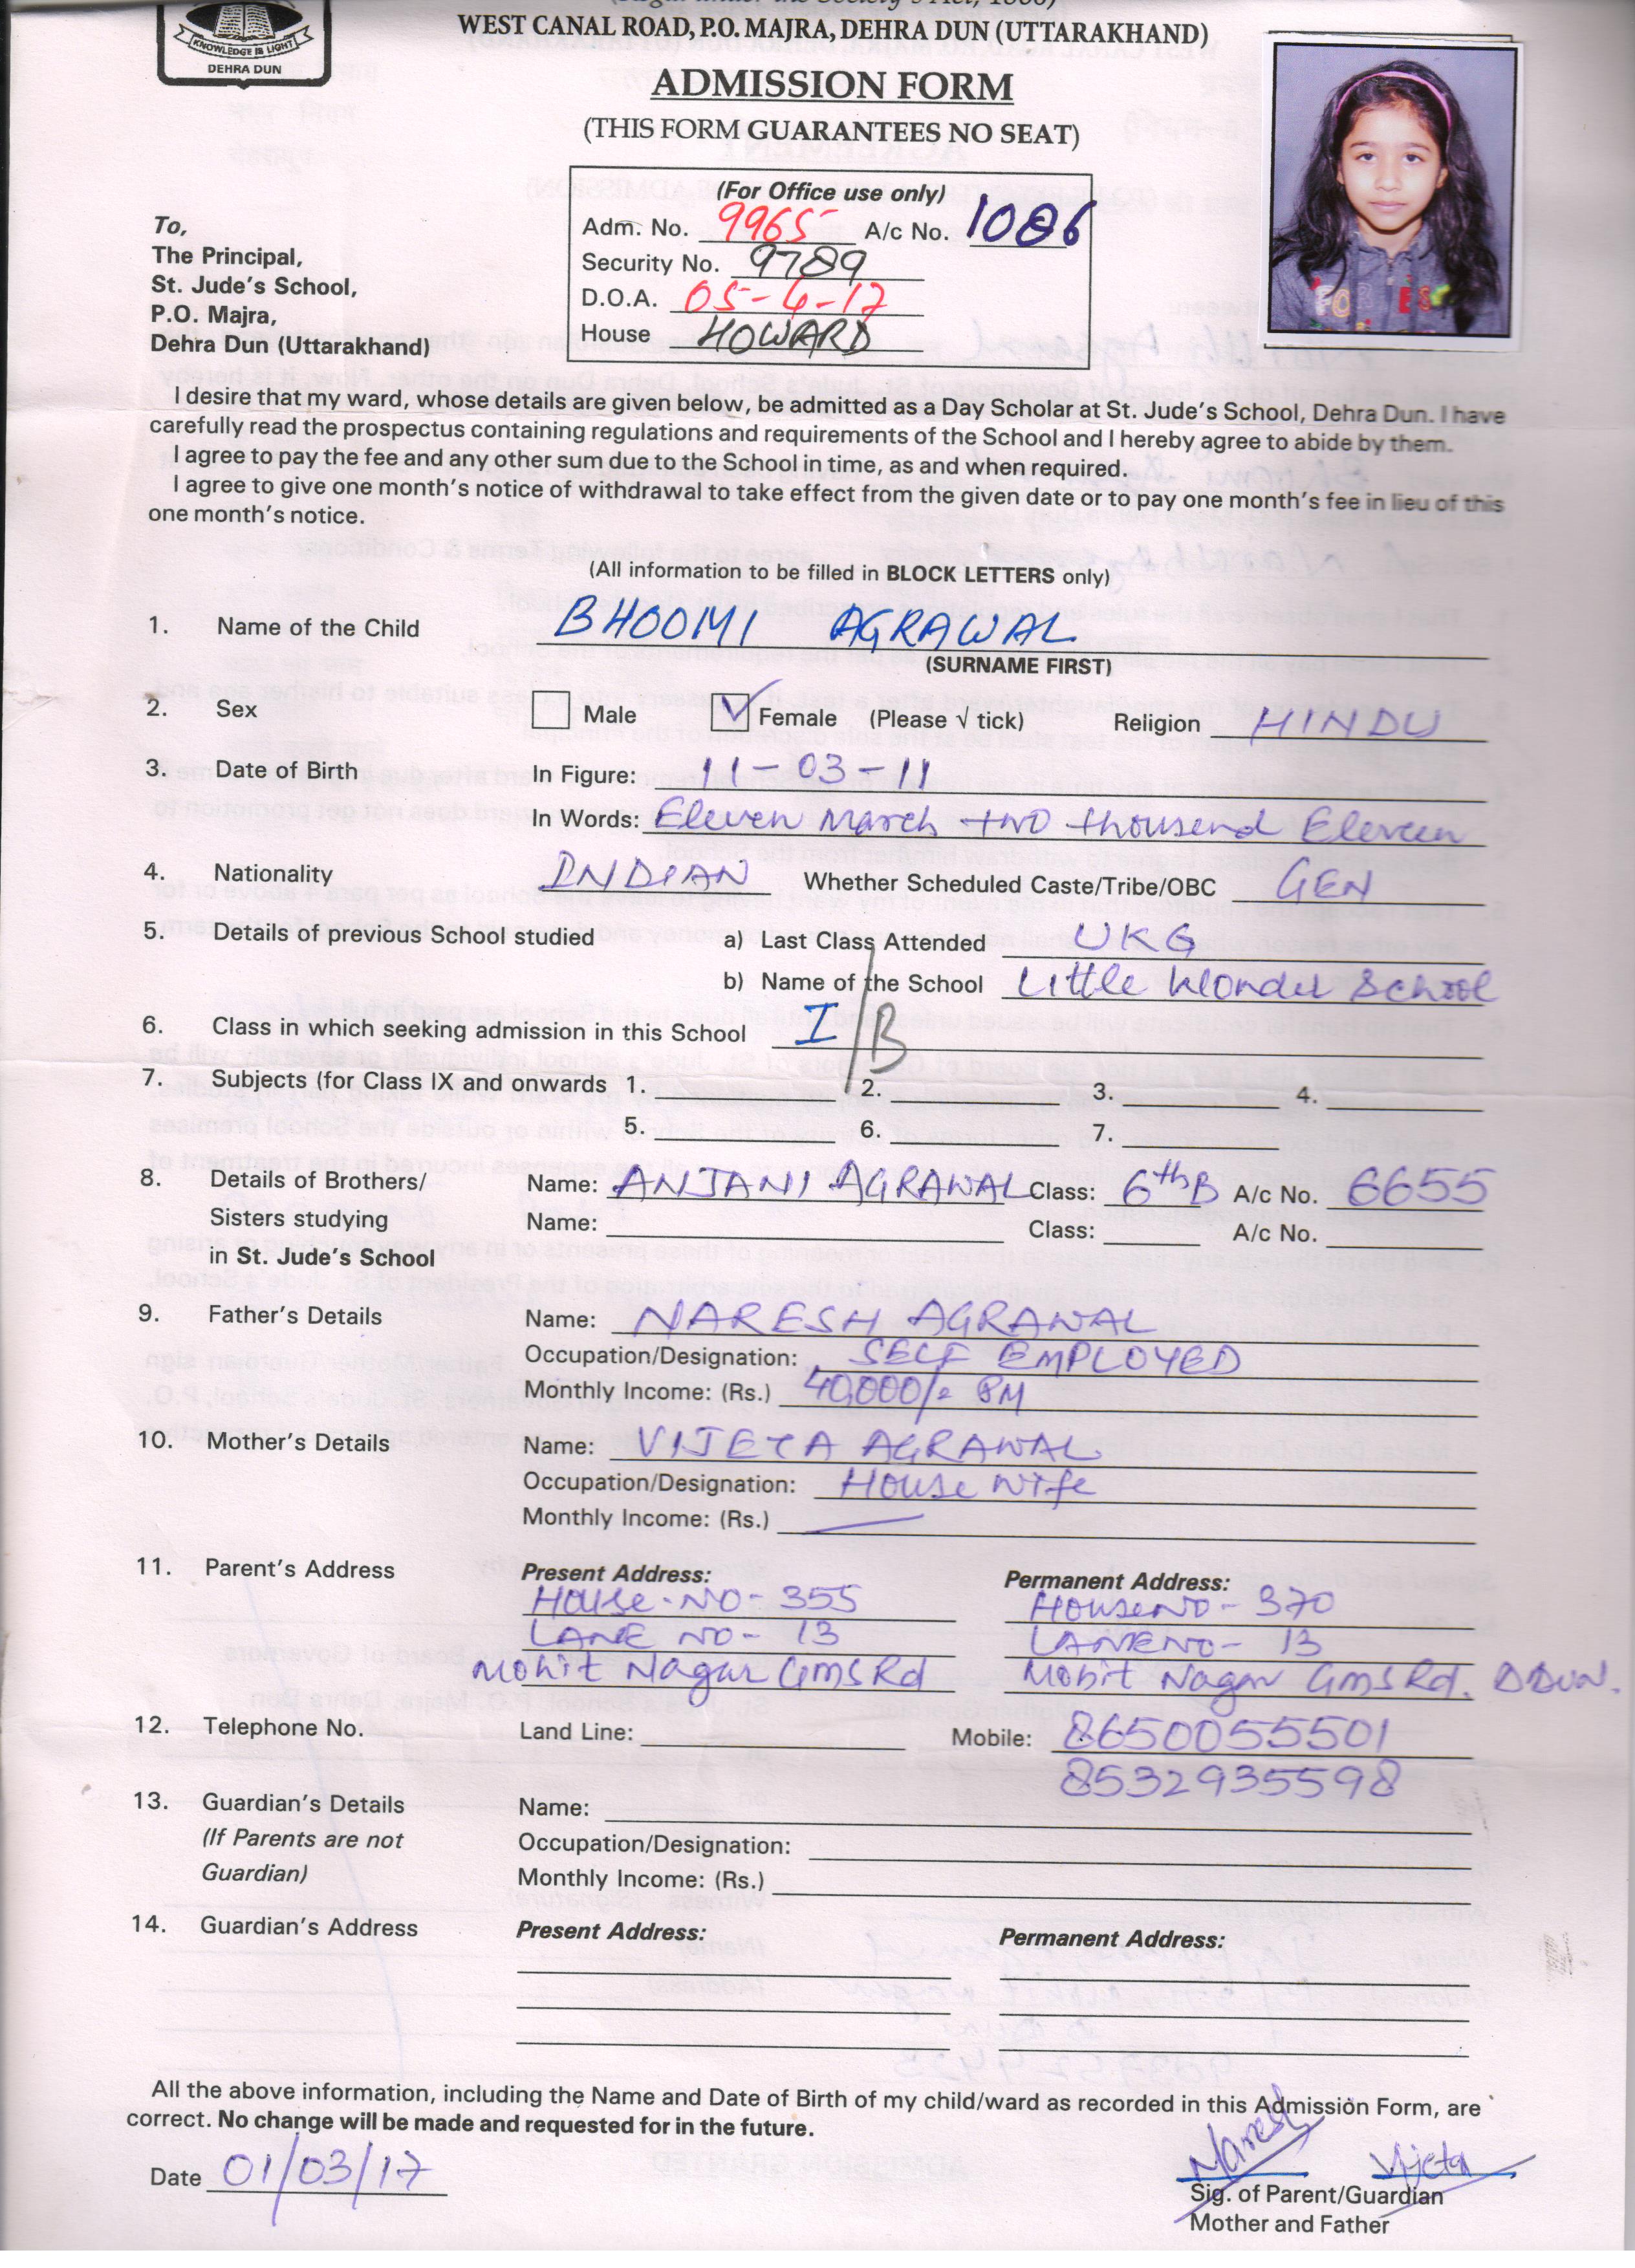 KNOWLEDGE IS LIGHT
DEHRA DUN
WEST CANAL ROAD, P.O. MAJRA, DEHRA DUN (UTTARAKHAND)
ADMISSION FORM
(THIS FORM GUARANTEES NO SEAT)
(For Office use only)
Adm. No. 9965 A/c No. 1086
Security No. 9789
D.O.A. 05-4-17
House HOWARD
To,
The Principal,
St. Jude's School,
P.O. Majra,
Dehra Dun (Uttarakhand)
I desire that my ward, whose details are given below, be admitted as a Day Scholar at St. Jude's School, Dehra Dun. I have
carefully read the prospectus containing regulations and requirements of the School and I hereby agree to abide by them.
I agree to pay the fee and any other sum due to the School in time, as and when required.
I agree to give one month's notice of withdrawal to take effect from the given date or to pay one month's fee in lieu of this
one month's notice.
(All information to be filled in BLOCK LETTERS only)
1. Name of the Child BHOOMI AGRAWAL
(SURNAME FIRST)
2. Sex Male Female (Please √ tick) Religion HINDU
3. Date of Birth In Figure: 11-03-11
In Words: Eleven March two thousend Eleveen
4. Nationality INDIAN Whether Scheduled Caste/Tribe/OBC GEN
5. Details of previous School studied a) Last Class Attended UKG
b) Name of the School Little Wonder School
6. Class in which seeking admission in this School I/B
7. Subjects (for Class IX and onwards 1. 2. 3. 4.
5. 6. 7.
8. Details of Brothers/ Name: ANJANI AGRAWAL Class: 6th B A/c No. 6655
Sisters studying Name: Class: A/c No.
in St. Jude's School
9. Father's Details Name: NARESH AGRAWAL
Occupation/Designation: SELF EMPLOYED
Monthly Income: (Rs.) 40,000/= PM
10. Mother's Details Name: VIJETA AGRAWAL
Occupation/Designation: House Wife
Monthly Income: (Rs.)
11. Parent's Address Present Address: Permanent Address:
House-NO- 355 HOUSENO- 370
LANE NO- 13 LANENO- 13
Mohit Nagar GMS Rd Mohit Nagar GMS Rd. DDUN.
12. Telephone No. Land Line: Mobile: 8650055501
8532935598
13. Guardian's Details Name:
(If Parents are not Occupation/Designation:
Guardian) Monthly Income: (Rs.)
14. Guardian's Address Present Address: Permanent Address:
All the above information, including the Name and Date of Birth of my child/ward as recorded in this Admission Form, are
correct. No change will be made and requested for in the future.
Date 01/03/17 Naresh Vijeta
Sig. of Parent/Guardian
Mother and Father